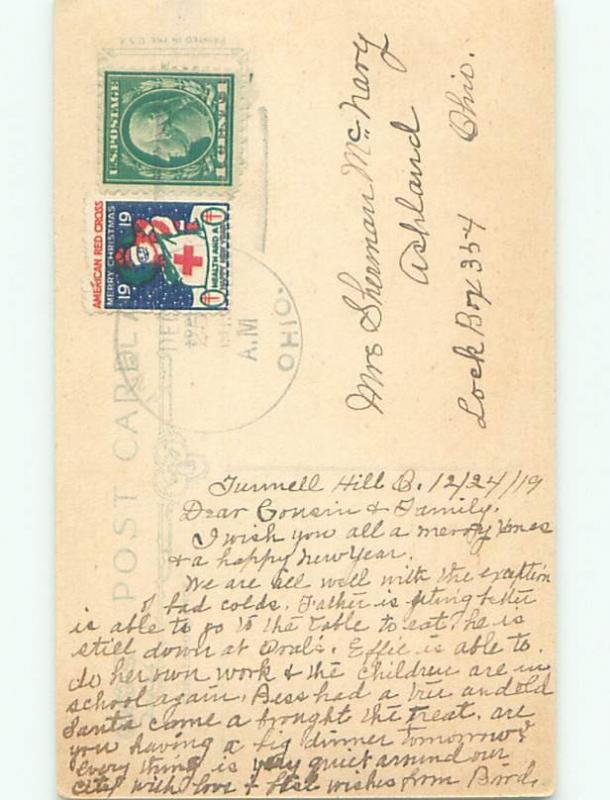 PRINTED IN THE U.S.A.
U.S. POSTAGE
CENTS
AMERICAN RED CROSS
MERRY CHRISTMAS
19 19
HEALTH AND A
POST CARD
DEC
A.M
OHIO.
Mrs Sherman McNary
Ashland Ohio.
Lock Box 334
Tunnell Hill O. 12/24/19
Dear Cousin & Family.
I wish you all a merry Xmas
& a happy New Year.
We are all well with the exception
of bad colds. Father is geting better
is able to go to the table to eat. he is
still down at Orals. Effie is able to
do her own work & the children are in
school again. Bess had a tree and old
Santa came a brought the treat. are
you having a big dinner tomorrow?
every thing is very quiet around our
city with love & best wishes from